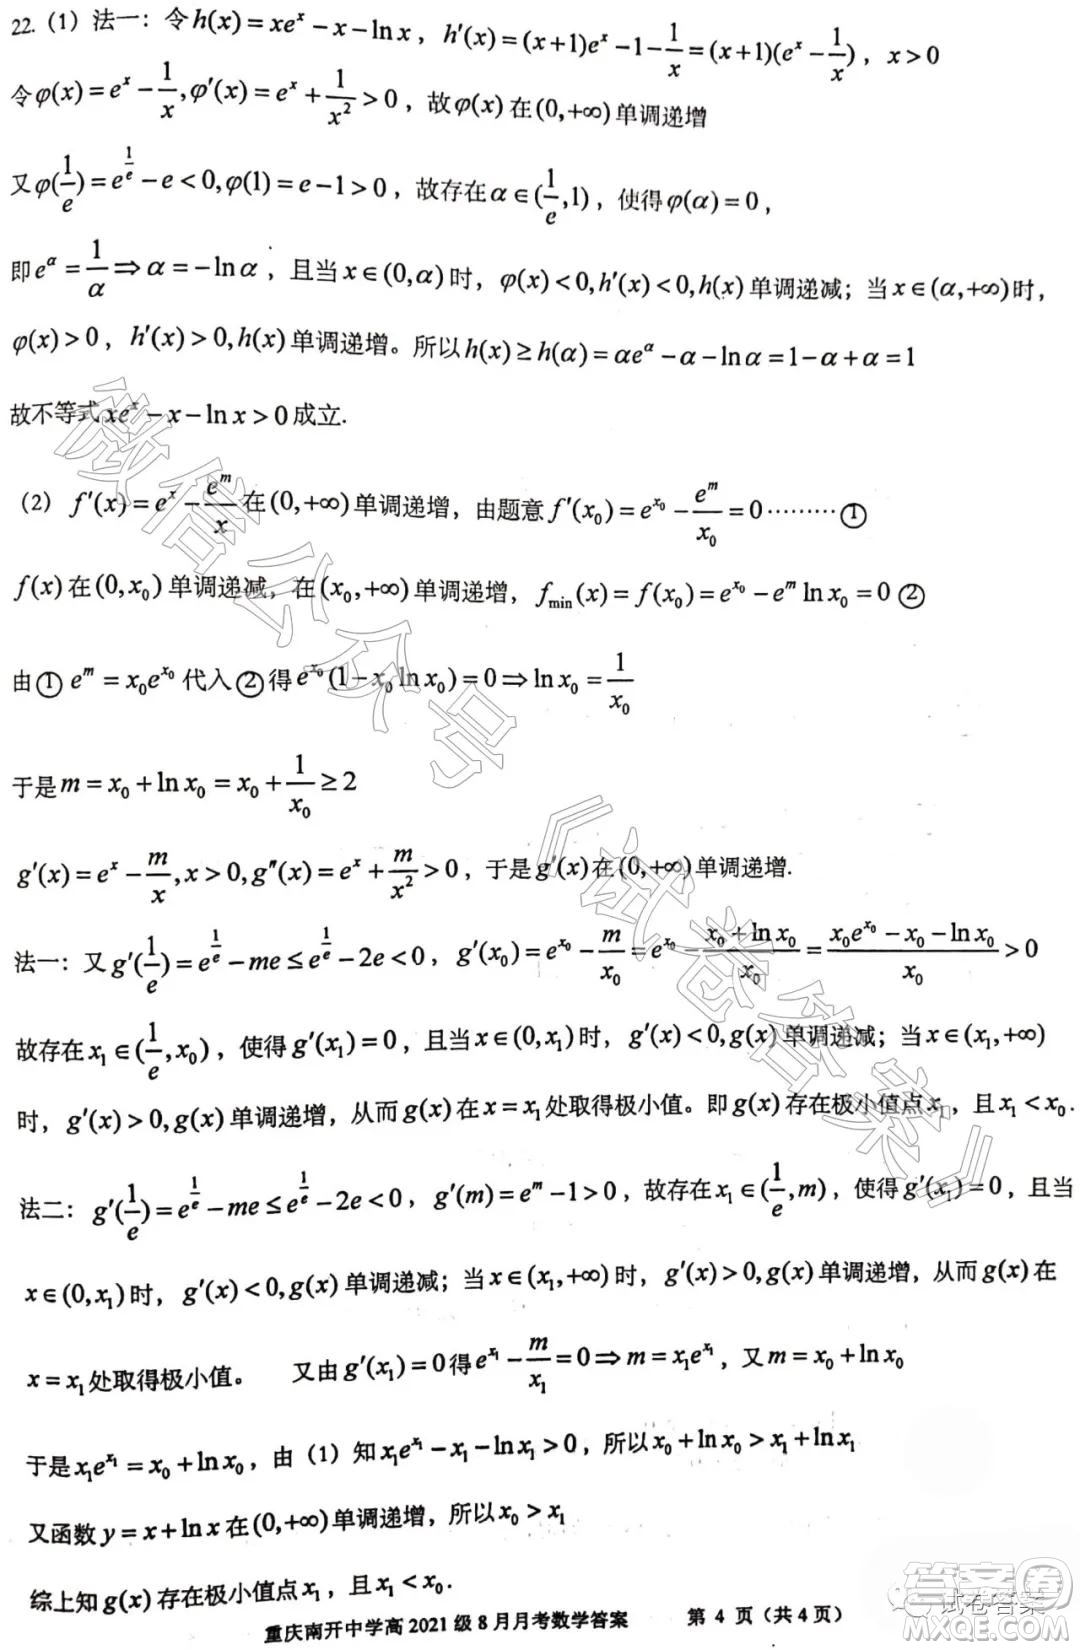 22. (1) 法一：令h(x)=xeˣ-x-ln x，h′(x)=(x+1)eˣ-1-1/x=(x+1)(eˣ-1/x)，x>0
令φ(x)=eˣ-1/x,φ′(x)=eˣ+1/x²>0，故φ(x)在(0,+∞)单调递增
又φ(1/e)=e^(1/e)-e<0,φ(1)=e-1>0，故存在α∈(1/e,1)，使得φ(α)=0，
即e^α=1/α⇒α=-ln α，且当x∈(0,α)时，φ(x)<0,h′(x)<0,h(x)单调递减；当x∈(α,+∞)时，
φ(x)>0，h′(x)>0,h(x)单调递增。所以h(x)≥h(α)=αe^α-α-ln α=1-α+α=1
故不等式xeˣ-x-ln x>0成立.
(2) f′(x)=eˣ-e^m/x在(0,+∞)单调递增，由题意f′(x₀)=e^(x₀)-e^m/x₀=0·········①
f(x)在(0,x₀)单调递减，在(x₀,+∞)单调递增，f_min(x)=f(x₀)=e^(x₀)-e^m ln x₀=0②
由①e^m=x₀e^(x₀)代入②得e^(x₀)(1-x₀ ln x₀)=0⇒ln x₀=1/x₀
于是m=x₀+ln x₀=x₀+1/x₀≥2
g′(x)=eˣ-m/x,x>0,g″(x)=eˣ+m/x²>0，于是g′(x)在(0,+∞)单调递增.
法一：又g′(1/e)=e^(1/e)-me≤e^(1/e)-2e<0，g′(x₀)=e^(x₀)-m/x₀=e^(x₀)-(x₀+ln x₀)/x₀=(x₀e^(x₀)-x₀-ln x₀)/x₀>0
故存在x₁∈(1/e,x₀)，使得g′(x₁)=0，且当x∈(0,x₁)时，g′(x)<0,g(x)单调递减；当x∈(x₁,+∞)
时，g′(x)>0,g(x)单调递增，从而g(x)在x=x₁处取得极小值。即g(x)存在极小值点x₁，且x₁<x₀.
法二：g′(1/e)=e^(1/e)-me≤e^(1/e)-2e<0，g′(m)=e^m-1>0，故存在x₁∈(1/e,m)，使得g′(x₁)=0，且当
x∈(0,x₁)时，g′(x)<0,g(x)单调递减；当x∈(x₁,+∞)时，g′(x)>0,g(x)单调递增，从而g(x)在
x=x₁处取得极小值。 又由g′(x₁)=0得e^(x₁)-m/x₁=0⇒m=x₁e^(x₁)，又m=x₀+ln x₀
于是x₁e^(x₁)=x₀+ln x₀，由（1）知x₁e^(x₁)-x₁-ln x₁>0，所以x₀+ln x₀>x₁+ln x₁
又函数y=x+ln x在(0,+∞)单调递增，所以x₀>x₁
综上知g(x)存在极小值点x₁，且x₁<x₀.
重庆南开中学高2021级8月月考数学答案 第 4 页（共4页）
微信公众号《试卷答案》
答案圈
试卷答案
MXQE.COM